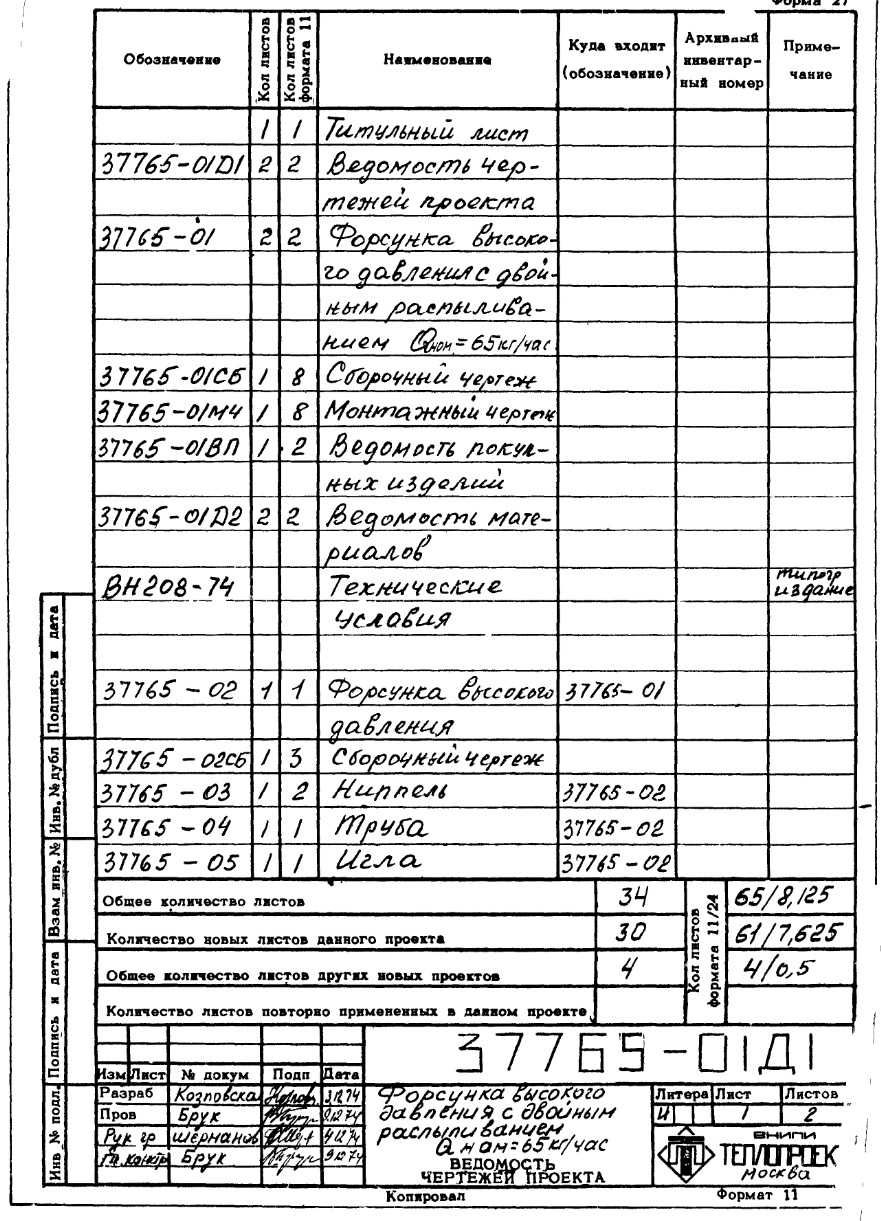 Форма 27
Обозначение Кол листов Кол листов формата 11 Наименование Куда входит (обозначение) Архивный инвентарный номер Примечание
1 1 Титульный лист
37765-01Д1 2 2 Ведомость чер-
тежей проекта
37765-01 2 2 Форсунка высоко-
го давления с двой-
ным распылива-
нием Qном=65кг/час
37765-01СБ 1 8 Сборочный чертеж
37765-01МЧ 1 8 Монтажный чертеж
37765-01ВП 1 2 Ведомость покуп-
ных изделий
37765-01Д2 2 2 Ведомость мате-
риалов
ВН208-74 Технические типогр издание
условия
37765-02 1 1 Форсунка высокого 37765-01
давления
37765-02СБ 1 3 Сборочный чертеж
37765-03 1 2 Ниппель 37765-02
37765-04 1 1 Труба 37765-02
37765-05 1 1 Игла 37765-02
Общее количество листов 34 Кол листов формата 11/24 65/8,125
Количество новых листов данного проекта 30 61/7,625
Общее количество листов других новых проектов 4 4/0,5
Количество листов повторно примененных в данном проекте
Подпись и дата
Инв. № дубл
Взам инв. №
Подпись и дата
Инв № подл.
37765-01Д1
Изм Лист № докум Подп Дата
Разраб Козловская 3.12.74
Пров Брук
Рук гр 4.12.74
Гл. констр Брук 9.12.74
Форсунка высокого
давления с двойным
распыливанием
Qном=65кг/час
ВЕДОМОСТЬ
ЧЕРТЕЖЕЙ ПРОЕКТА
Литера Лист Листов
И 1 2
ВНИПИ
ТЕПЛОПРОЕКТ
Москва
Копировал Формат 11